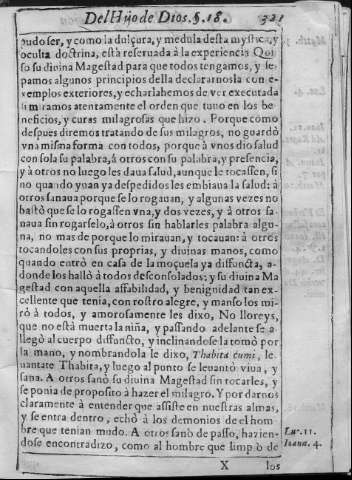 Del Hijo de Dios. §. 18. 321
pudo ser, y como la dulçura, y medula desta mystica, y
oculta doctrina, està reseruada à la experiencia. Qui
so su diuina Magestad para que todos tengamos, y se-
pamos algunos principios della declararnosla con e-
xemplos exteriores, y echarlahemos de ver executada
si miramos atentamente el orden que tuuo en los be-
neficios, y curas milagrosas que hizo. Porque como
despues diremos tratando de sus milagros, no guardò
vna misma forma con todos, porque à vnos dio salud
con sola su palabra, à otros con su palabra, y presencia,
y à otros no luego les daua salud, aunque le tocassen, si
no quando yuan ya despedidos les embiaua la salud: à
otros sanaua porque se lo rogauan, y algunas vezes no
bastò que se lo rogassen vna, y dos vezes, y à otros sa-
naua sin rogarselo, à otros sin hablarles palabra algu-
na, no mas de porque lo mirauan, y tocauan à otros
tocandoles con sus proprias, y diuinas manos, como
quando entrò en casa de la moçuela ya diffuncta, a-
donde los hallò à todos desconsolados; y su diuina Ma
gestad con aquella affabilidad, y benignidad tan ex-
cellente que tenia, con rostro alegre, y manso los mi-
rò à todos, y amorosamente les dixo, No lloreys,
que no està muerta la niña, y passando adelante se a-
llegò al cuerpo diffuncto, y inclinandose la tomò por
la mano, y nombrandola le dixo, Thabita cumi, le-
uantate Thabita, y luego al punto se leuantò viua, y
sana. A otros sanò su diuina Magestad sin tocarles, y
se ponia de proposito à hazer el milagro. Y por darnos
claramente à entender que assiste en nuestras almas,
y se entra dentro, echò à los demonios de el hom
bre que tenian mudo. A otros sanò de passo, hazien-
dose encontradizo, como al hombre que limpiò de
Luc. 11.
Ioann. 4.
X los